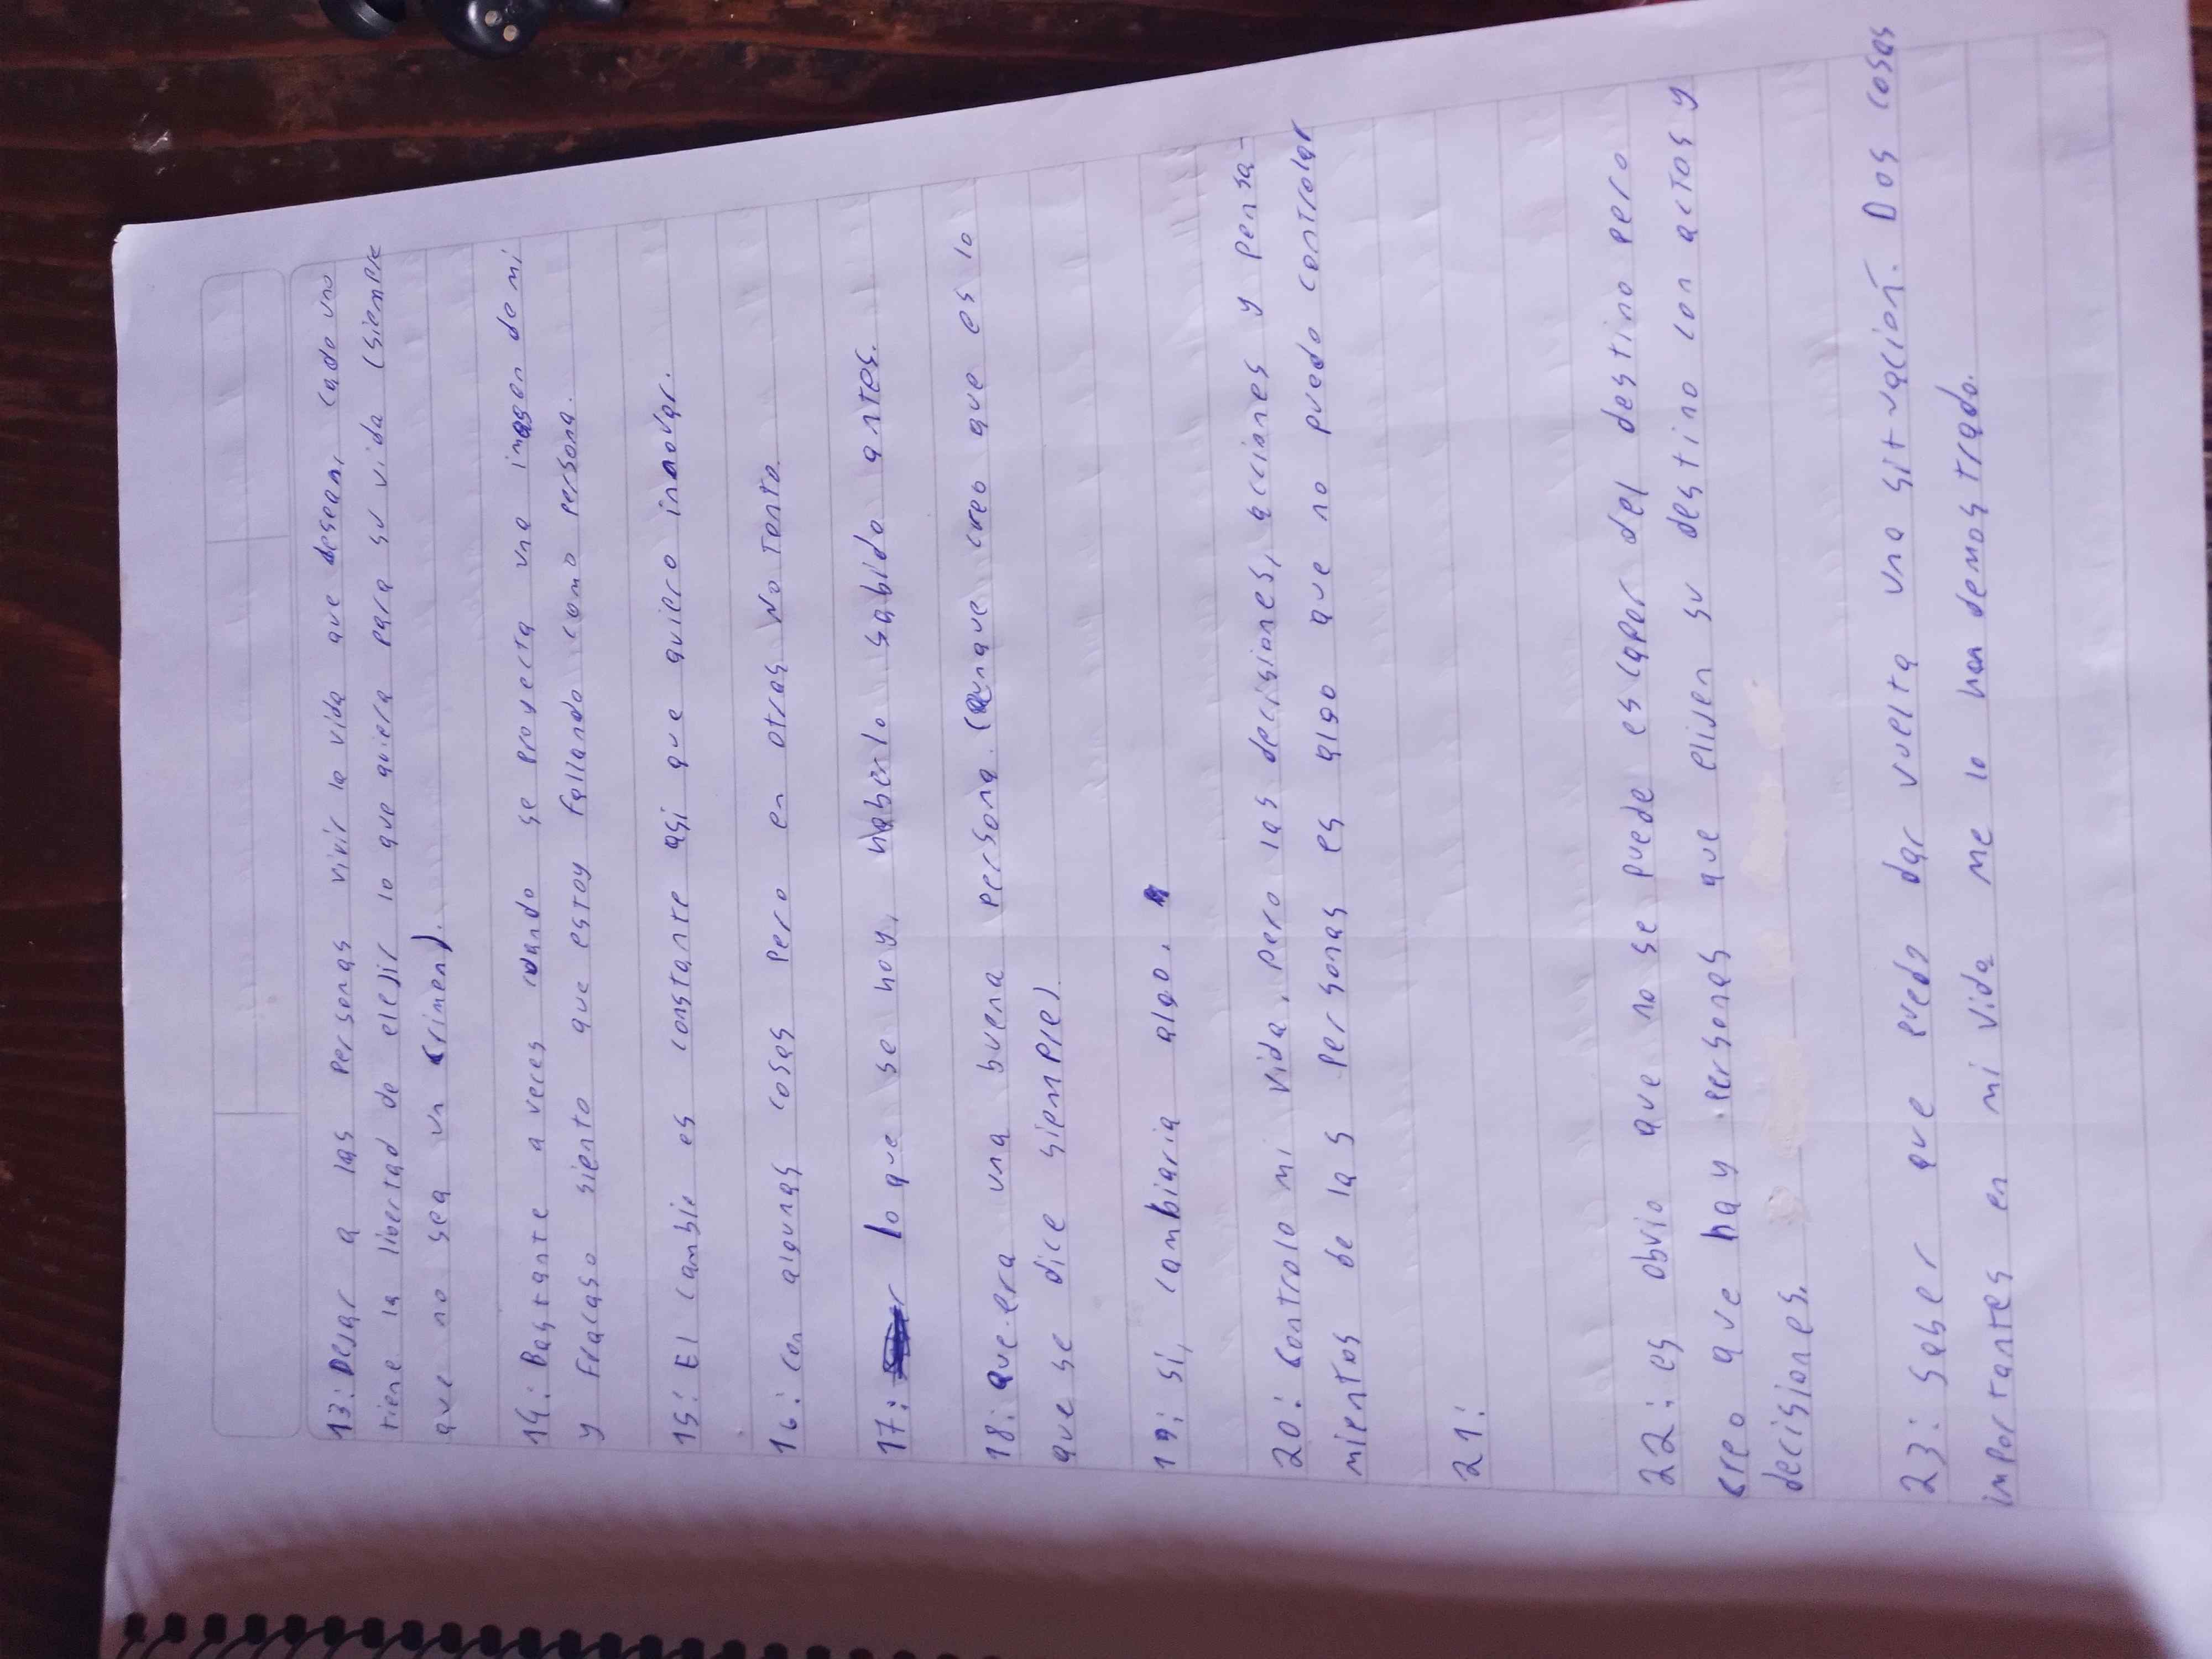 13: Dejar a las personas vivir la vida que desean, cada uno
tiene la libertad de elejir lo que quiera para su vida (siempre
que no sea un crimen).
14: Bastante a veces cuando se proyecta una imagen de mi
y fracaso siento que estoy fallando como persona.
15: El cambio es constante asi que quiero innovar.
16: con algunas cosas pero en otras no tanto
17: lo que se hoy, haberlo sabido antes.
18: que era una buena persona. (Aunque creo que es lo
que se dice siempre).
19: si, cambiaria algo.
20: controlo mi vida, pero las decisiones, acciones y pensa-
mientos de las personas es algo que no puedo controlar
21:
22: es obvio que no se puede escapar del destino pero
creo que hay personas que elijen su destino con actos y
decisiones.
23: saber que puedo dar vuelta una situación. Dos cosas
importantes en mi vida me lo han demostrado.